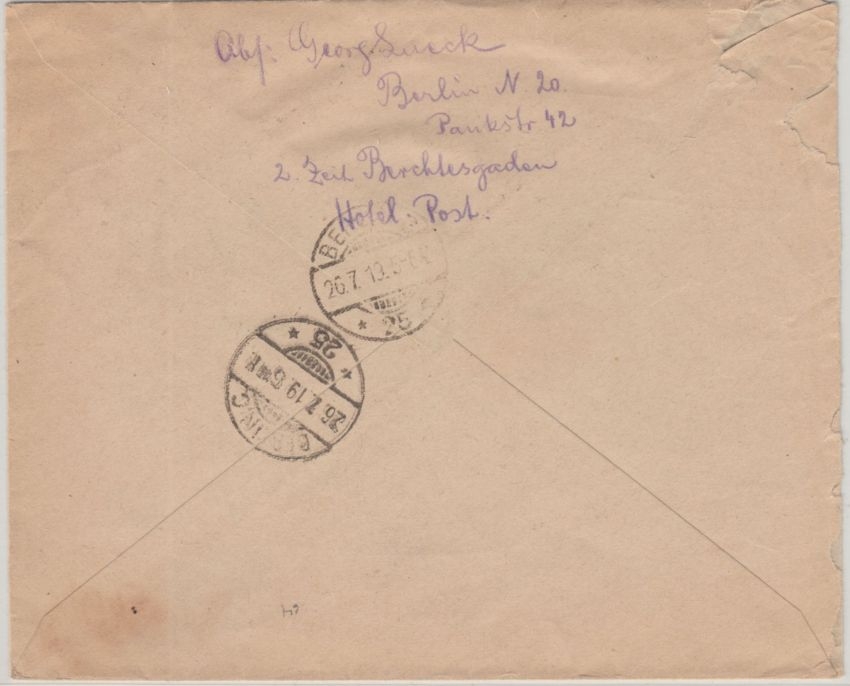 Abs: Georg Lueck
Berlin N. 20.
Pankstr 42
z. Zeit Berchtesgaden
Hotel. Post.
26.7.19. 5-6 N
* 25
* 25 *
26.7.19. N
BERLIN C